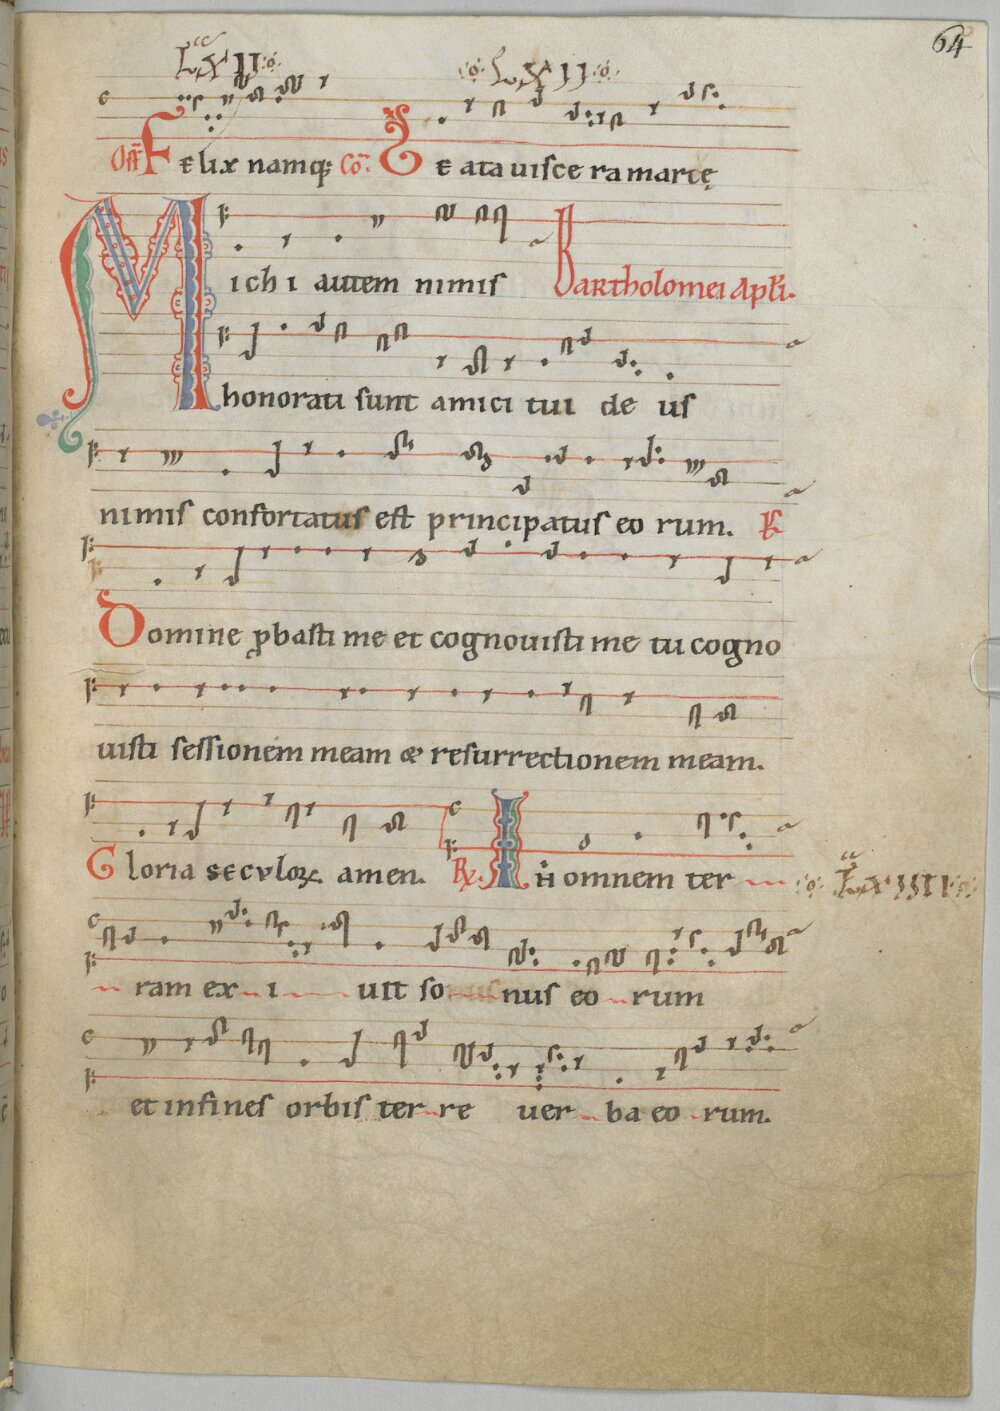 64
LXII LXII
Off̄ Felix namq; Cō. Beata uiscera marię
Michi autem nimis Bartholomei Apłi.
honorati sunt amici tui deus
nimis confortatus est principatus eorum. Ps
Domine ꝓbasti me et cognouisti me tu cogno
uisti sessionem meam & resurrectionem meam.
Gloria seculoꝝ. amen. R̷. IN omnem ter
LXIIII
ram exiuit sonus eorum
et in fines orbis terre uerba eorum.